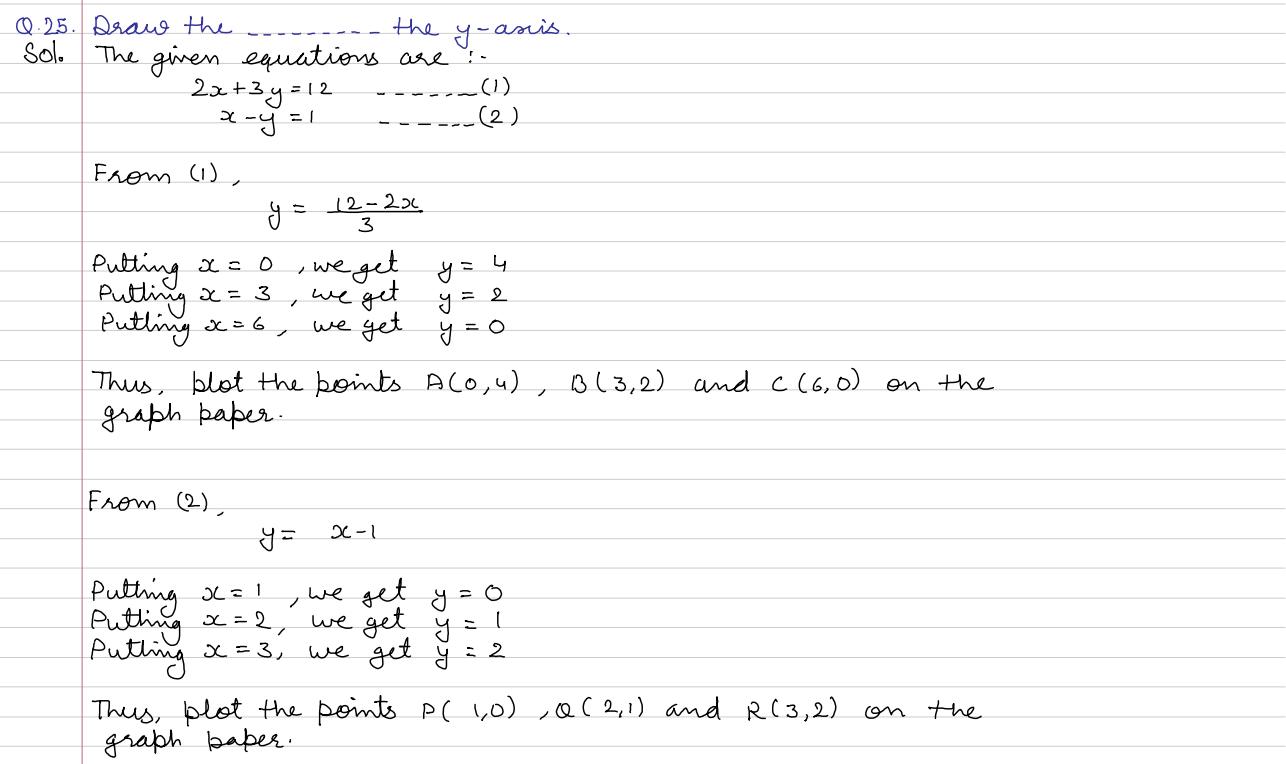 Q.25. Draw the --------- the y-axis.
Sol. The given equations are :-
2x+3y=12 ------(1)
x-y=1 ------(2)
From (1),
y = 12-2x
3
Putting x = 0 , we get y = 4
Putting x = 3 , we get y = 2
Putting x = 6 , we get y = 0
Thus, plot the points A(0,4) , B(3,2) and C(6,0) on the
graph paper.
From (2),
y = x-1
Putting x = 1 , we get y = 0
Putting x = 2, we get y = 1
Putting x = 3, we get y = 2
Thus, plot the points P(1,0) , Q(2,1) and R(3,2) on the
graph paper.